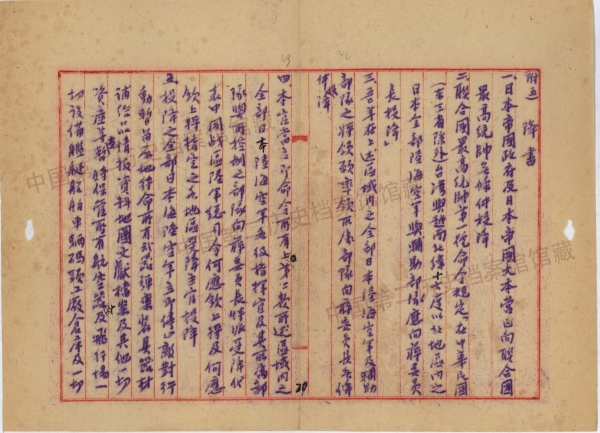 附五 降書
一、日本帝國政府及日本帝國大本營已向聯合國
最高統帥無條件投降
二、聯合國最高統帥第一號命令規定「在中華民國
(東三省除外)台灣與越南北緯十六度以北地區內之
日本全部陸海空軍與輔助部隊應向蔣委員
長投降」
三、吾等在上述區域內之全部日本陸海空軍及輔助
部隊之將領願率領所屬部隊向蔣委員長無條
件投降
四、本官當立即命令所有上第二款所述區域內之
全部日本陸海空軍各級指揮官及其所屬部
隊與所控制之部隊向蔣委員長特派受降代
表中國战區陸軍總司令何應欽上將及何應
欽上將指定之各地區受降主官投降
五、投降之全部日本海陸空軍立即停止敵對行
動暫留原地待命所有武器彈藥裝具器材
補給品情報資料地圖文獻檔案及其他一切
資產等當暫時保管所有航空器及飛行場一
切設備艦艇船舶車輛碼頭工廠倉庫及一切
20
中国第二历史档案馆馆藏